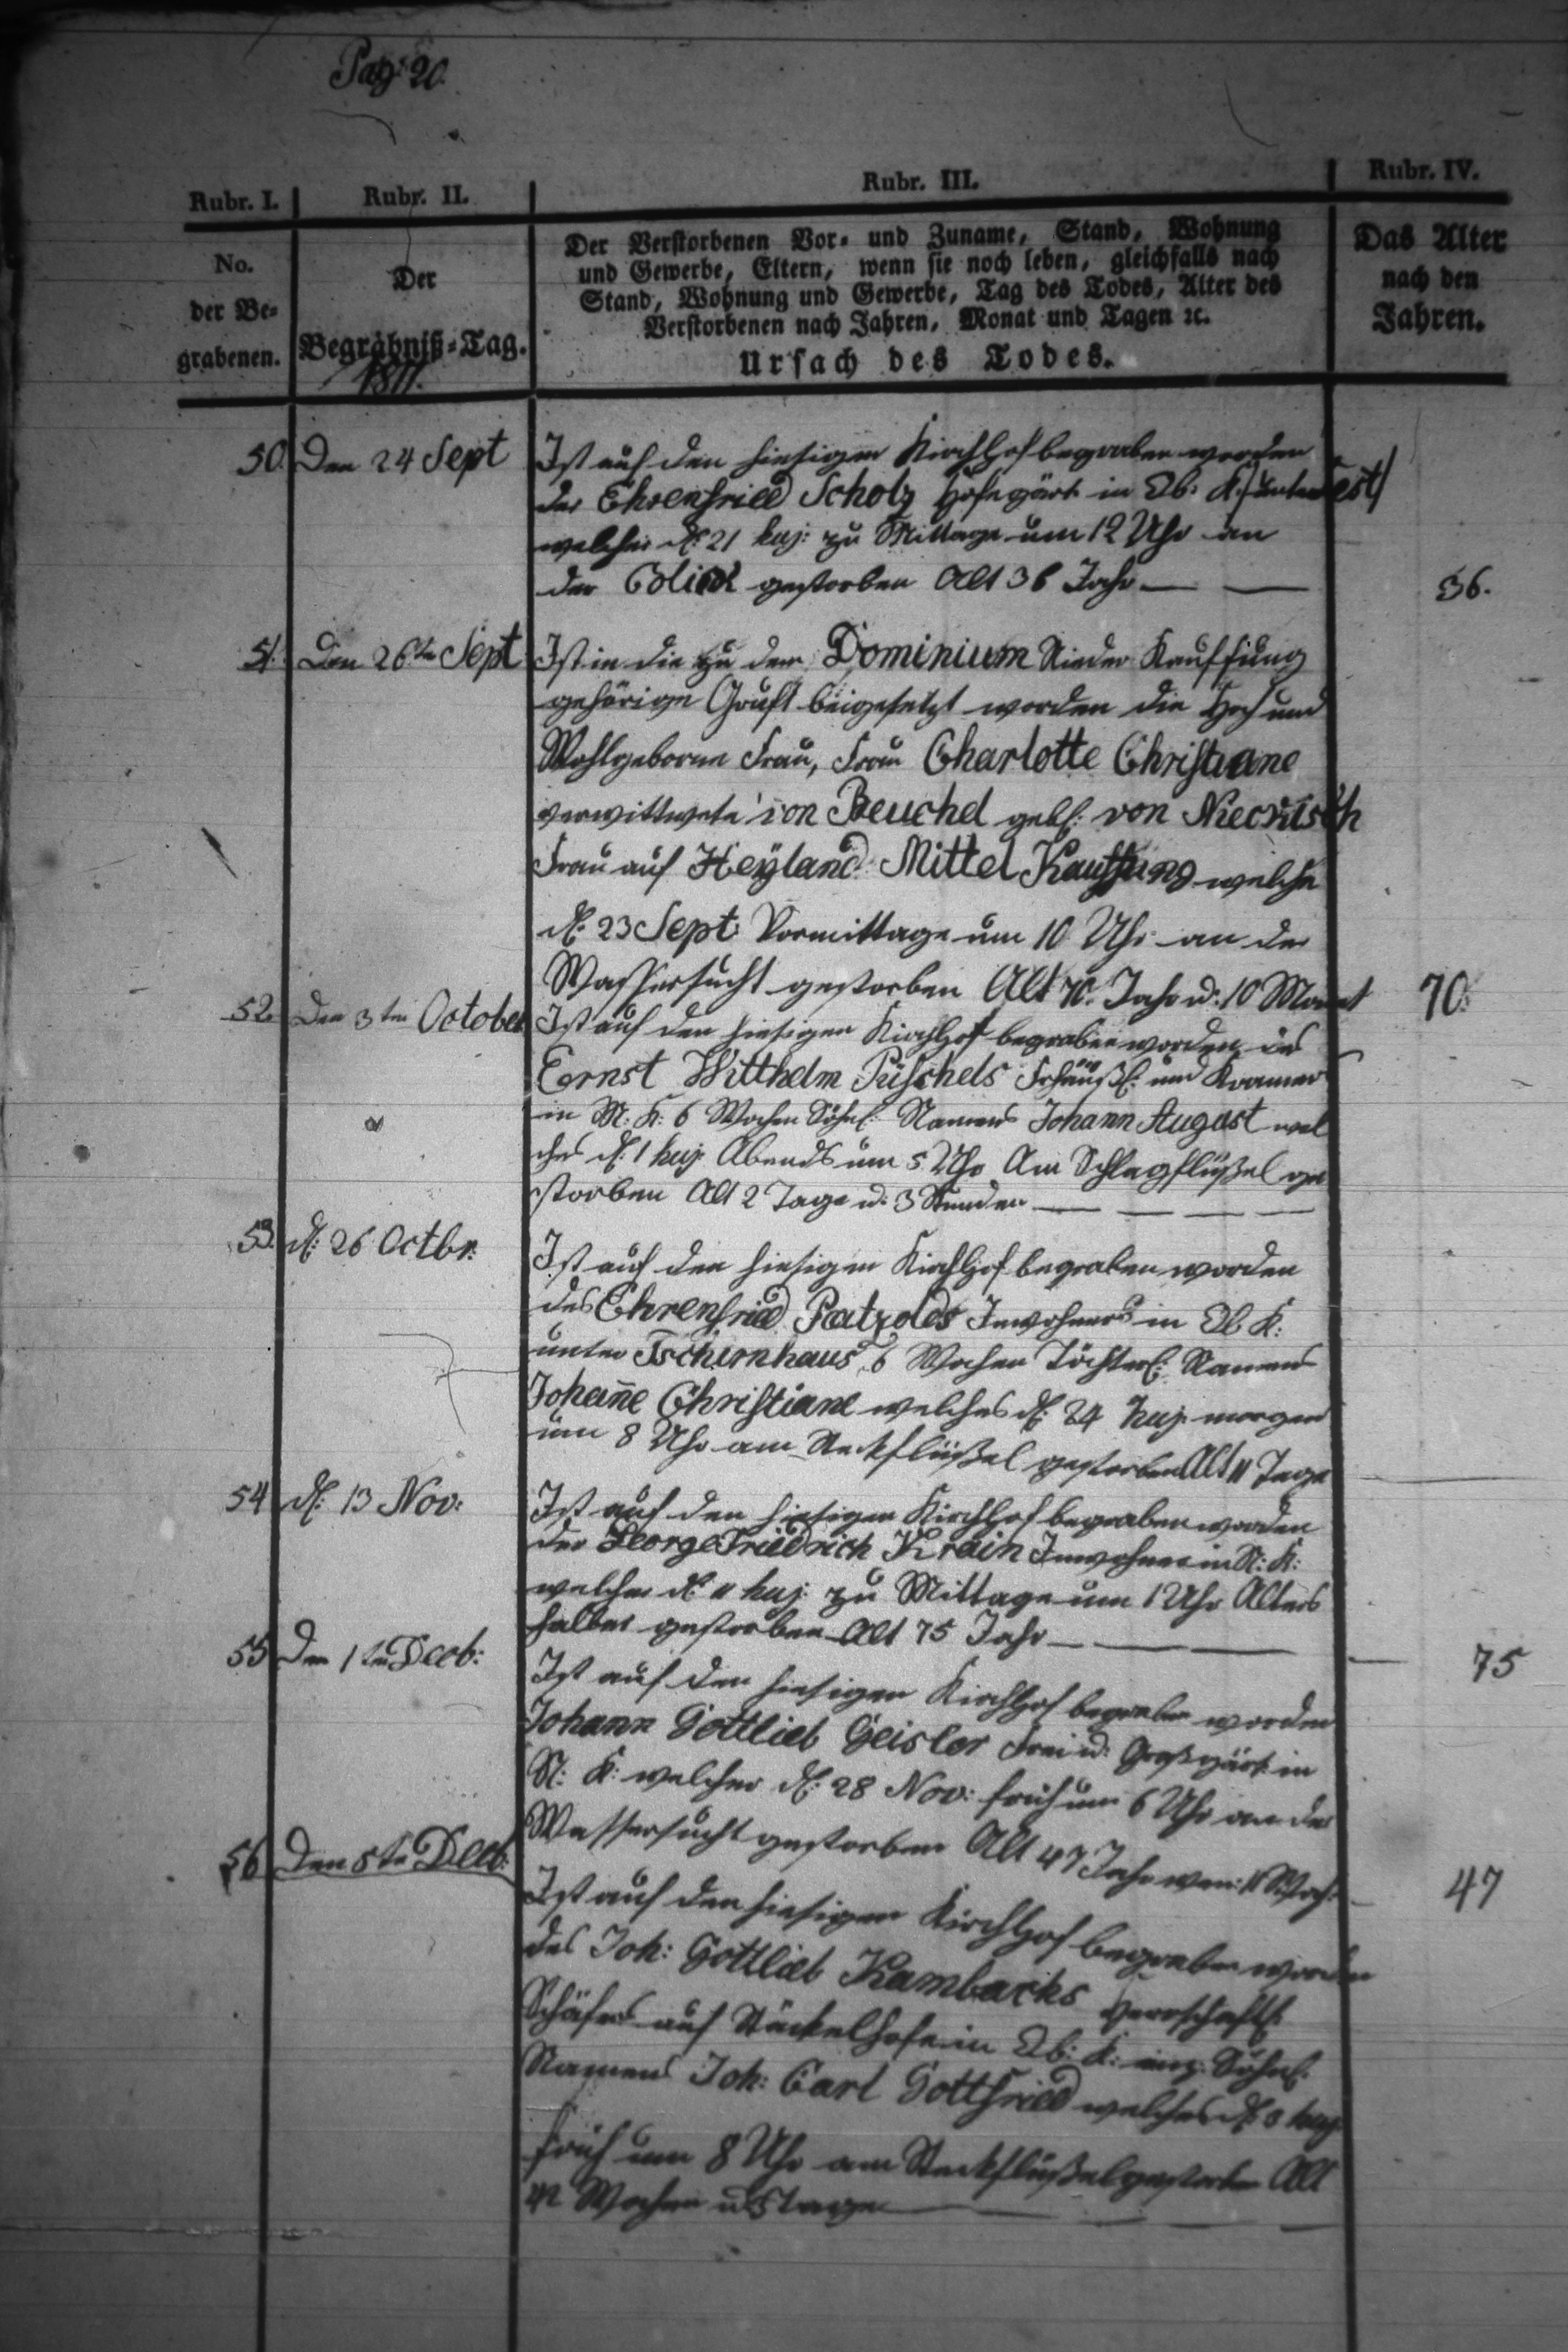 Pag: 20.
Rubr. I.
Rubr. II.
Rubr. III.
Rubr. IV.
No.
der Be=
grabenen.
Der
Begräbniß=Tag.
1811.
Der Verstorbenen Vor= und Zuname, Stand, Wohnung
und Gewerbe, Eltern, wenn sie noch leben, gleichfalls nach
Stand, Wohnung und Gewerbe, Tag des Todes, Alter des
Verstorbenen nach Jahren, Monat und Tagen ꝛc.
Ursach des Todes.
Das Alter
nach den
Jahren.
50. Den 24 Sept
Ist auf den hiesigen Kirchhof begraben worden
der Ehrenfried Scholz Hofegärt. in Ob: K:
welcher d: 21 huj: zu Mittage um 12 Uhr an
der Colick gestorben Alt 36 Jahr
36.
51. Den 26ten Sept
Ist in die zu dem Dominium Nieder Kauffung
gehörige Gruft beigesetzt worden die Hoch und
Wohlgeborne Frau, Frau Charlotte Christiane
verwittwete von Beuchel geb: von
Frau auf Heyland Mittel Kauffung welche
d: 23 Sept: Vormittage um 10 Uhr an der
Wassersucht gestorben Alt 70. Jahr u: 10 Monat
70.
52. Den 3ten October
Ist auf den hiesigen Kirchhof begraben worden des
Ernst Willhelm Püschels Frhäußl: und Kramer
in M: K: 6 Wochen Söhnl: Namens Johann August wel
ches d: 1 huj: Abends um 5 Uhr Am Schlagflüßel ge
storben Alt 2 Tage u: 3 Stunden
53. d: 26 Octbr:
Ist auf den hiesigen Kirchhof begraben worden
des Ehrenfried Patzolds Inwohners in Ob K:
unter Tschirnhaus 6 Wochen Töchterl: Namens
Johañe Christiane welches d: 24 huj: morgens
um 8 Uhr am Steckflüßel gestorben Alt 11 Tage
54 d: 13 Nov:
Ist auf den hiesigen Kirchhof begraben worden
der George Friedrich Krain Inwohner in N: K:
welcher d: 11 huj: zu Mittage um 1 Uhr Alters
halber gestorben Alt 75 Jahr
75
55 Den 1ten Decb:
Ist auf den hiesigen Kirchhof begraben worden
Johann Gottlieb Geisler Frei u: Großgärt. in
N: K: welcher d: 28 Nov: früh um 6 Uhr an der
Wassersucht gestorben Alt 47 Jahr wen: 11 Woch:
47
56 Den 5ten Decb:
Ist auf den hiesigen Kirchhof begraben worden
des Joh: Gottlieb Kambachs herrschaftl:
Schäfers auf Stöckelhofe in Ob: K: einz: Söhnl:
Namens Joh: Carl Gottfried welches d: 3 huj:
früh um 8 Uhr am Steckflüßel gestorben Alt
Wochen u: 5 Tage